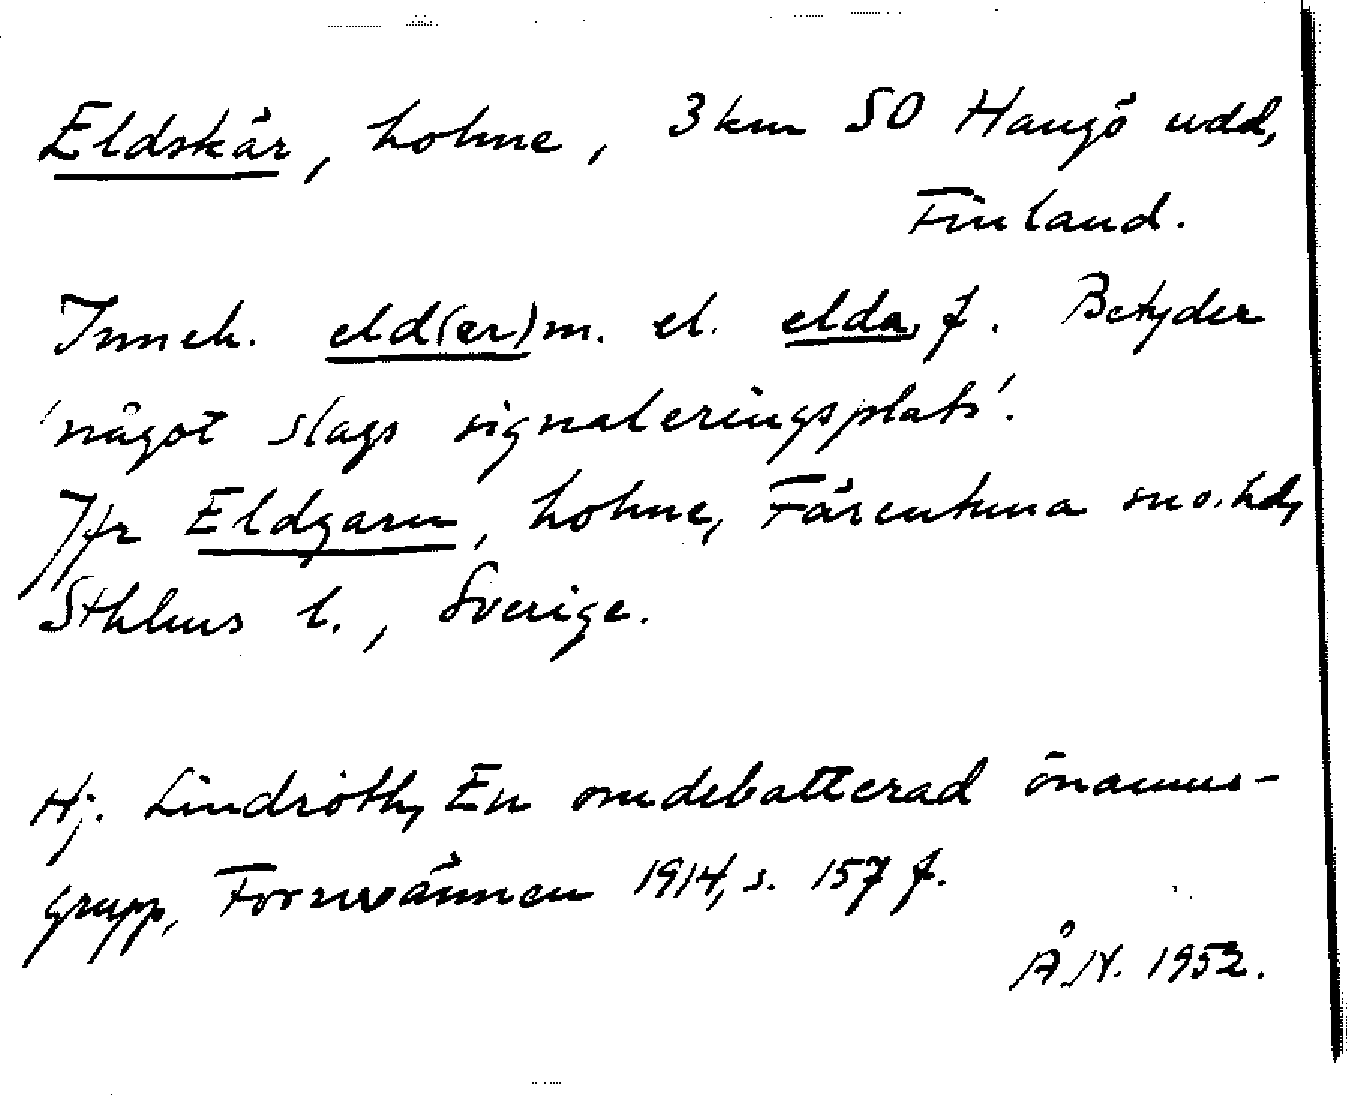 Eldskär, holme, 3 km SO Hangö udd,
Finland.
Inneh. eld(er) m. el. elda, f. Betyder
'något slags signaleringsplats'.
Jfr Eldgarn, holme, Färentuna sn o. hd,
Sthlms l., Sverige.
Hj. Lindroth, En omdebatterad önamns-
grupp, Fornvännen 1914, s. 157 f.
Å.N. 1952.